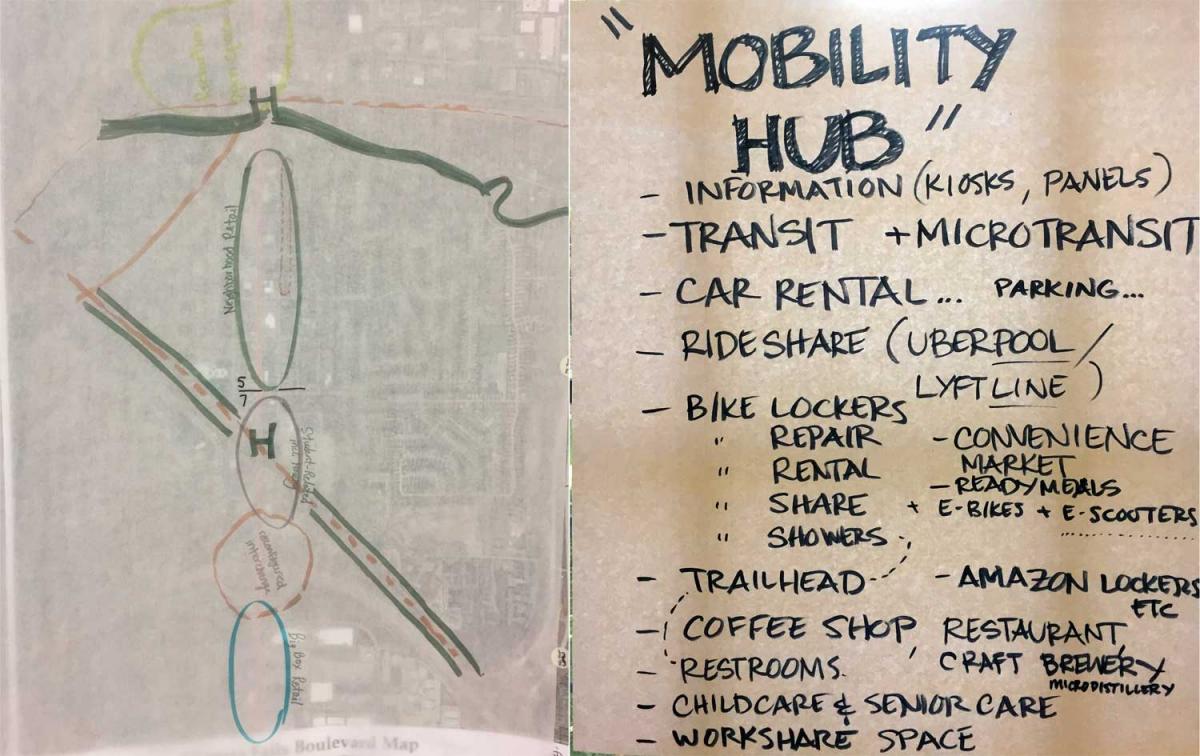 H
Neighborhood Retail
5
7
H
Student-Related
reconfigured
interchange
Big Box Retail
Boulevard Map
"MOBILITY
HUB"
- INFORMATION (KIOSKS, PANELS)
- TRANSIT + MICROTRANSIT
- CAR RENTAL... PARKING...
- RIDESHARE (UBERPOOL/
LYFTLINE)
- BIKE LOCKERS
" REPAIR - CONVENIENCE
MARKET
" RENTAL
- READYMEALS
" SHARE + E-BIKES + E-SCOOTERS
" SHOWERS
- TRAILHEAD - AMAZON LOCKERS
ETC
- COFFEE SHOP, RESTAURANT,
- RESTROOMS. CRAFT BREWERY
MICRODISTILLERY
- CHILDCARE & SENIOR CARE
- WORKSHARE SPACE